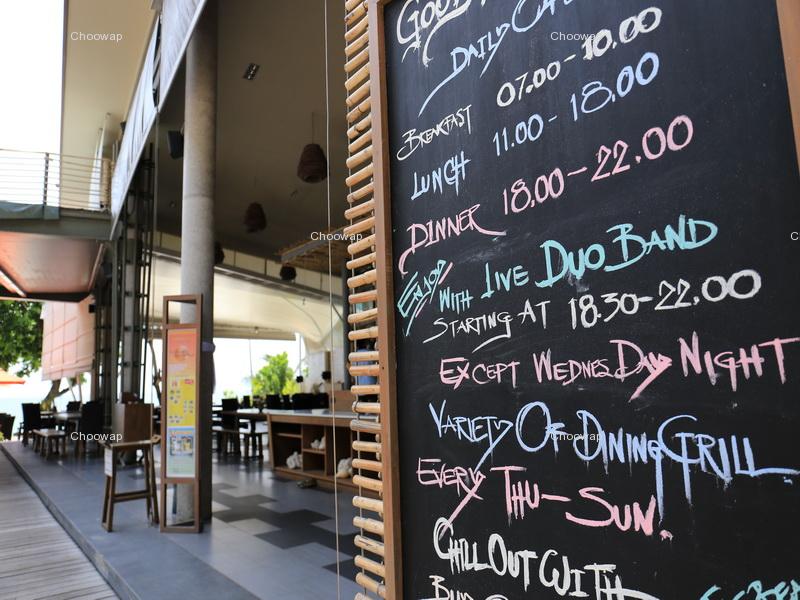 Choowap Choowap Choowap
DAILY
BREAKFAST 07.00-10.00
LUNCH 11.00-18.00
DINNER 18.00-22.00
ENJOY WITH LIVE DUO BAND
STARTING AT 18.30-22.00
EXCEPT WEDNESDAY NIGHT
VARIETY OF DINING GRILL
EVERY THU-SUN.
CHILL OUT WITH
Choowap
Choowap Choowap